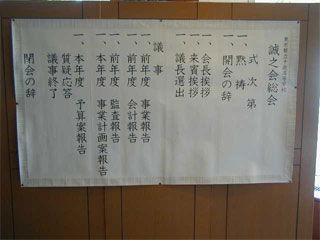 誠之会総会
式次第
一、黙祷
一、開会の辞
一、会長挨拶
一、来賓挨拶
一、議長選出
議事
一、前年度 事業報告
一、前年度 会計報告
一、前年度 監査報告
一、本年度 事業計画案報告
一、本年度 予算案報告
質疑応答
議事終了
閉会の辞